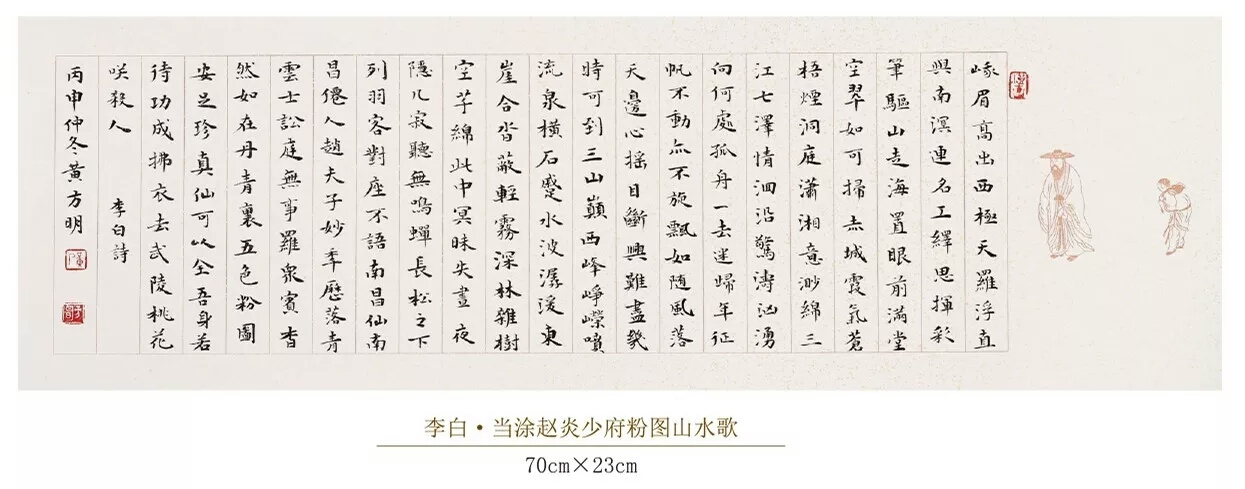 峨眉高出西極天羅浮直
與南溟連名工繹思揮彩
筆驅山走海置眼前滿堂
空翠如可掃赤城霞氣蒼
梧煙洞庭瀟湘意渺綿三
江七澤情洄沿驚濤洶湧
向何處孤舟一去迷歸年征
帆不動亦不旋飄如随風落
天邊心摇目斷興難盡幾
時可到三山巔西峰崢嶸噴
流泉橫石蹙水波潺湲東
崖合沓蔽輕霧深林雜樹
空芊綿此中冥昧失晝夜
隱几寂聽無鳴蟬長松之下
列羽客對座不語南昌仙南
昌僊人趙夫子妙年歷落青
雲士訟庭無事羅衆賓杳
然如在丹青裏五色粉圖
安足珍真仙可以全吾身若
待功成拂衣去武陵桃花
咲殺人 李白詩
丙申仲冬黃方明
李白·当涂赵炎少府粉图山水歌
70cm×23cm